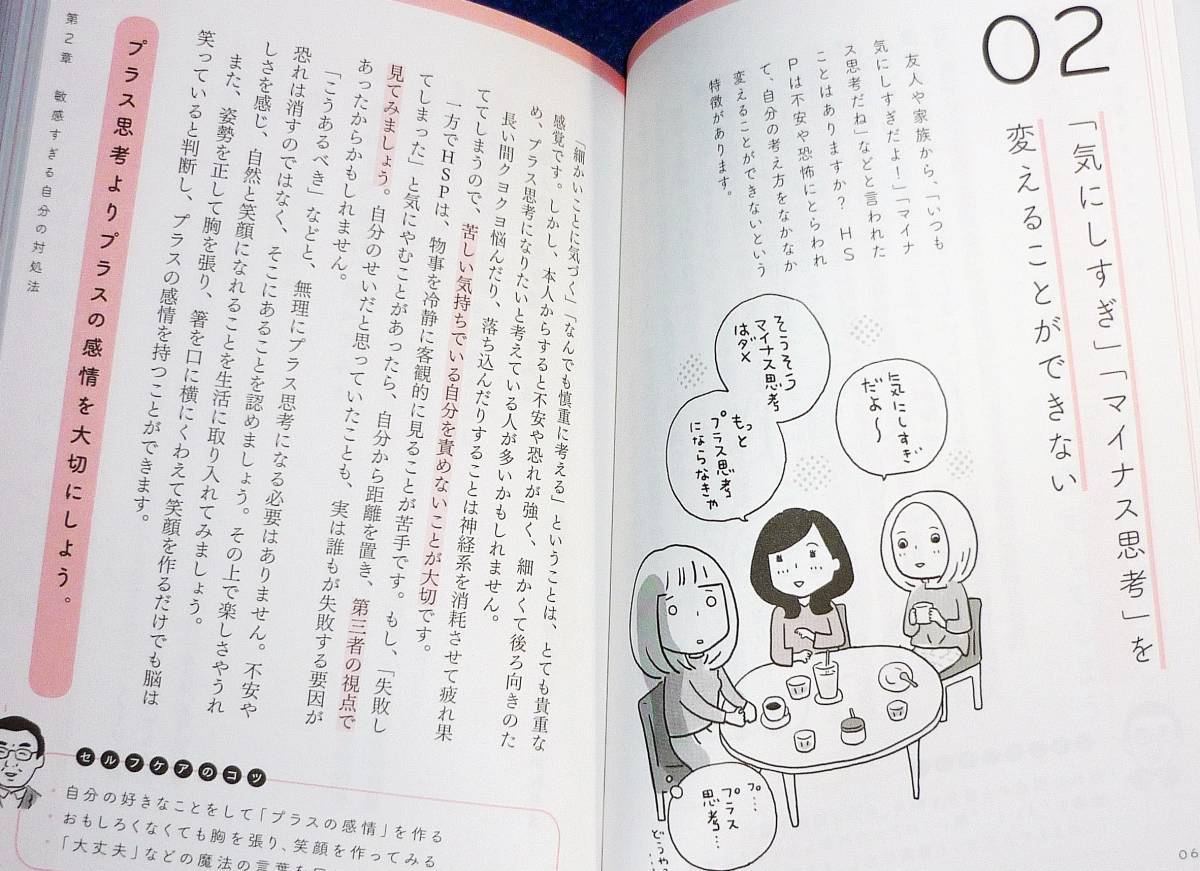 02
「気にしすぎ」「マイナス思考」を
変えることができない
友人や家族から、「いつも
気にしすぎだよ!」「マイナ
ス思考だね」などと言われた
ことはありますか? HS
Pは不安や恐怖にとらわれ
て、自分の考え方をなかなか
変えることができないという
特徴があります。
気にしすぎ
だよ〜
そうそう
マイナス思考
はダメ
もっと
プラス思考
にならなきゃ
プ…
プラス
思考…
どうやっ
06
「細かいことに気づく」「なんでも慎重に考える」ということは、とても貴重な
感覚です。しかし、本人からすると不安や恐れが強く、細かくて後ろ向きのた
め、プラス思考になりたいと考えている人が多いかもしれません。
長い間クヨクヨ悩んだり、落ち込んだりすることは神経系を消耗させて疲れ果
ててしまうので、苦しい気持ちでいる自分を責めないことが大切です。
一方でHSPは、物事を冷静に客観的に見ることが苦手です。もし、「失敗し
てしまった」と気にやむことがあったら、自分から距離を置き、第三者の視点で
見てみましょう。自分のせいだと思っていたことも、実は誰もが失敗する要因が
あったからかもしれません。
「こうあるべき」などと、無理にプラス思考になる必要はありません。不安や
恐れは消すのではなく、そこにあることを認めましょう。その上で楽しさやうれ
しさを感じ、自然と笑顔になれることを生活に取り入れてみましょう。
また、姿勢を正して胸を張り、箸を口に横にくわえて笑顔を作るだけでも脳は
笑っていると判断し、プラスの感情を持つことができます。
プラス思考よりプラスの感情を大切にしよう。
第2章 敏感すぎる自分の対処法
セルフケアのコツ
・自分の好きなことをして「プラスの感情」を作る
・おもしろくなくても胸を張り、笑顔を作ってみる
・「大丈夫」などの魔法の言葉を